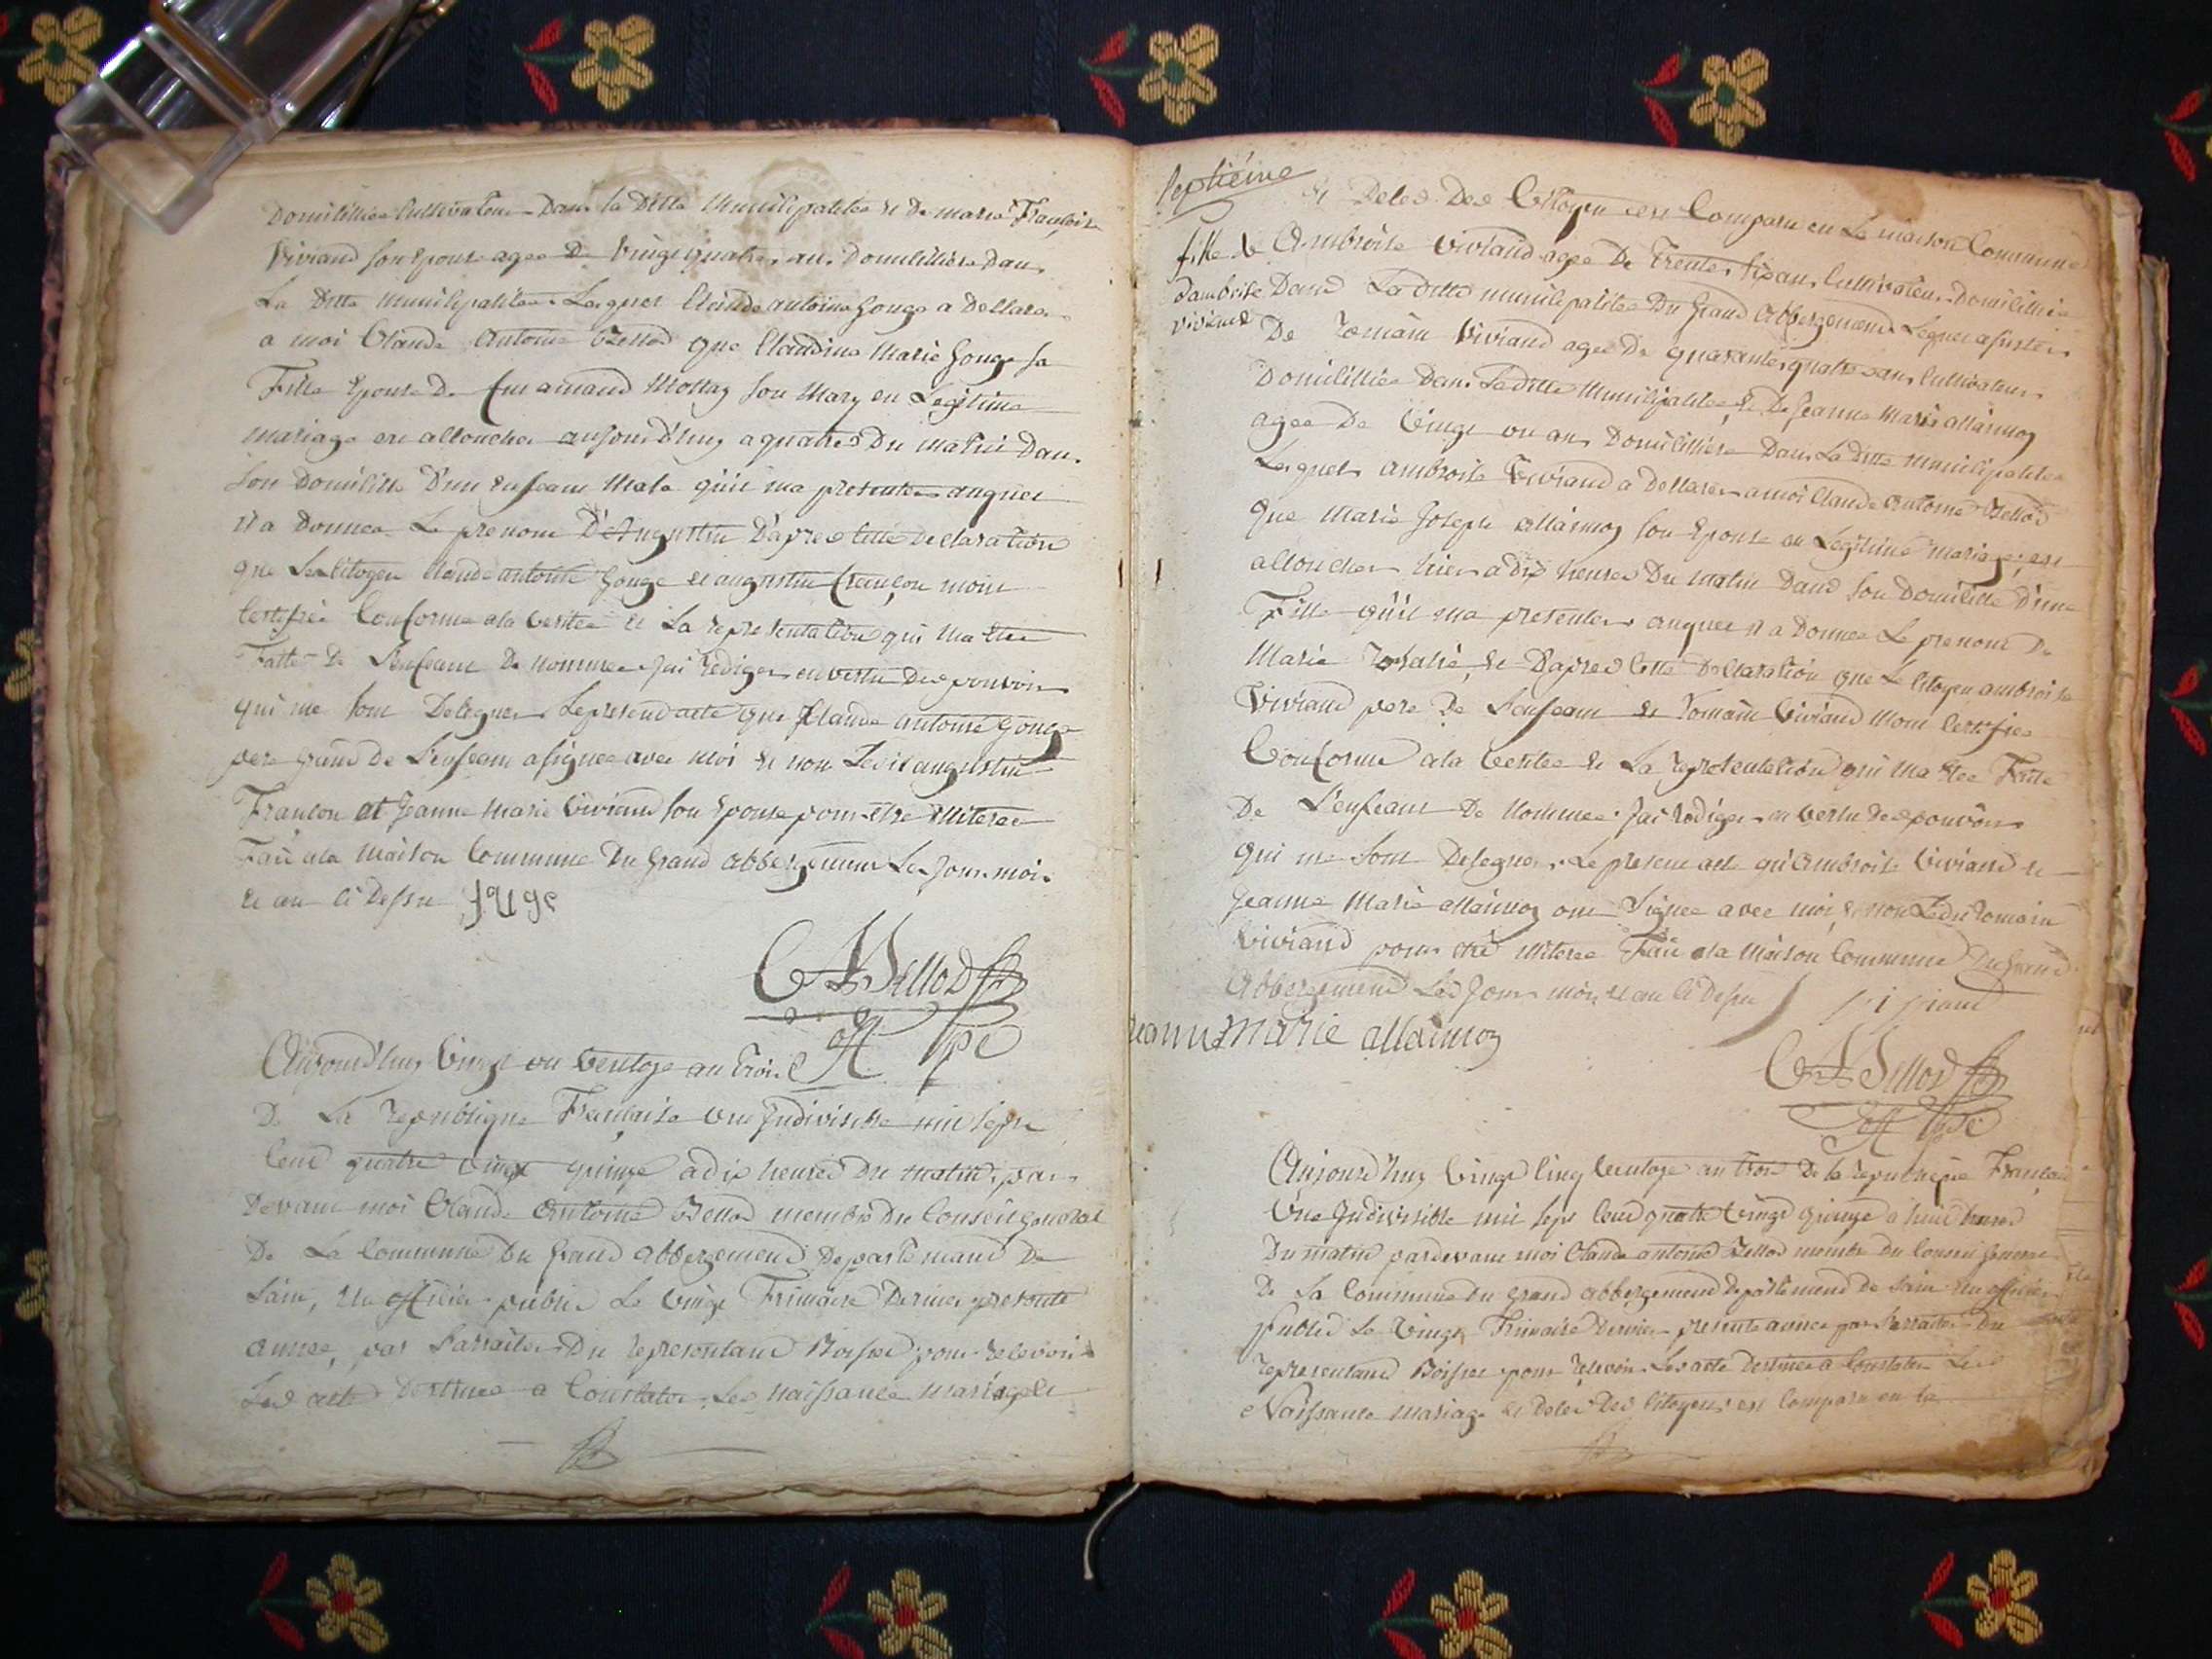 Domicilliée Cultivateur Dans la Ditte Municipalitée et De marie Françoise
Viviand son Epouse agee De Vingt quatre ans Domicilliére Dans
La Ditte Municipalitée Lequel Claude antoine Gouge a Declarer
a moi Claude Antoine Bellod que Claudine Marie Gouge sa
Fille Epouse De Mottaz son Mary en Legitime
mariage est accoucher aujourd'huy a quatres Du matin Dans
son Domicille D'un Enfeant Male qu'il ma presenter auquel
il a Donnee Le prenom D'Augustin D'apres cette Declaration
que Les Citoyen Claude antoine Gouge et augustin Françon mont
Certifiée Conforme a la veritée et La representation qui ma Etée
Faitte De L'enfeant De nommee Jai rediger en vertu Des pouvoirs
qui me sont Deleguer Le present acte que Claude antoine Gouge
pere grand De L'enfeant a signee avec moi et non Ledit augustin
Françon et Jeanne Marie Viviand son Epouse pour etre illiteree
Fait a la Maison Commune Du Grand abbergement Les Jour mois
et an ci Dessu Jouge
CABellod
off pc
Aujourd'huy Vingt un Ventoze an trois
De La republique Francaise une Indivisible mil sept
Cent quatre vingt quinze a dix heures Du matin par
Devant moi Claude Antoine Bellod membre Du Conseil general
De La Commune Du Grand abbergement Departement De
Lain, Elu officier public Le vingt Frimaire Dernier presente
annee, par Larraiter Du representant Boisset pour recevoir
Les acte Destinee a Constater Les naissance Mariage et
septiéme
fille de
d'ambroise
viviand
et Deces Des Citoyen est Comparu en La maison Commune
Ambroise Viviand agee De Trente six ans Cultivateur Domicilliée
Dans La ditte municipalitée Du Grand Abbergement Lequel assistee
De Romain Viviand agee De quarante quatre ans Cultivateur
Domicilliée Dans La ditte Municipalitée et De Jeanne Marie allaimoz
agee De Vingt un ans Domicilliére Dans La Ditte municipalitée
Lequel ambroise Viviand a Declarer a moi Claude Antoine Bellod
que Marie Joseph allaimoz son Epouse en Legitime mariage, est
accoucher hier a dix heures Du matin Dans son Domicille D'une
Fille qu'il ma presenter auquel il a Donnee Le prenom De
Marie Rosalie, et D'apres cette Declaration que Le Citoyen ambroise
Viviand pere De L'enfeant et Romain Viviand Mont Certifiee
Conforme a la veritee et La representation qui ma Etee Faitte
De L'enfeant De nommee Jai rediger en vertu Des pouvoirs
qui me sont Deleguer Le present acte qu'Ambroise Viviand et
Jeanne Marie allaimoz ont signee avec moi et non Ledit Romain
Viviand pour etre illiteree Fait a la Maison Commune Du Grand
Abbergement Les Jour mois et an ci Dessu viviand
jeanne marie allaimoz
CABellod
off pc
Aujourd'huy Vingt Cinq Ventoze an trois De la republique Française
Une Indivisible mil sept Cent quatre vingt quinze a huit heures
Du matin pardevant moi Claude antoine Bellod membre Du Conseil general
De La Commune Du grand abbergement Departement De Lain Elu officier
Public Le vingt Frimaire Dernier presente annee par Larraiter Du
representant Boisset pour recevoir Les acte Destinee a Constater Les
Naissance Mariage et Deces Des Citoyens est Comparu en La